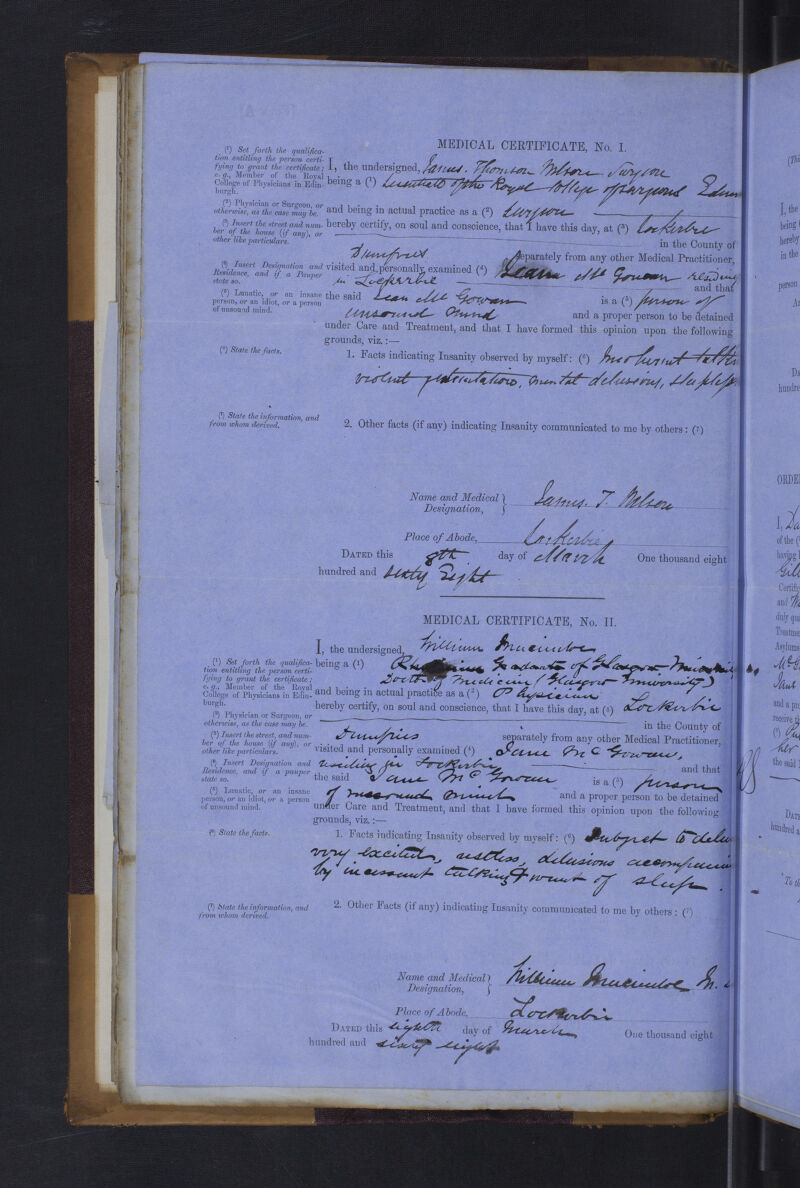 MEDICAL CERTIFICATE, No. I.
(¹) Set forth the qualifica-
tion entitling the person certi-
fying to grant the certificate;
e. g., Member of the Royal
College of Physicians in Edin-
burgh.
(²) Physician or Surgeon, or
otherwise, as the case may be.
(³) Insert the street and num-
ber of the house (if any), or
other like particulars.
(⁴) Insert Designation and
Residence, and if a Pauper
state so.
(⁵) Lunatic, or an insane
person, or an idiot, or a person
of unsound mind.
(⁶) State the facts.
(⁷) State the information, and
from whom derived.
I, the undersigned, James. Thomson Wilson Surgeon
being a (¹) Licentiate of the Royal College of Surgeons Edin
and being in actual practice as a (²) Surgeon
hereby certify, on soul and conscience, that I have this day, at (³) Lockerbie
in the County of
Dumfries separately from any other Medical Practitioner,
visited and personally examined (⁴) Jean Mc Gowan residing
in Lockerbie and that
the said Jean Mc Gowan is a (⁵) person of
unsound mind and a proper person to be detained
under Care and Treatment, and that I have formed this opinion upon the following
grounds, viz. :—
1. Facts indicating Insanity observed by myself: (⁶) Incoherent talk
violent gesticulations, mental delusions, sleepless
2. Other facts (if any) indicating Insanity communicated to me by others: (⁷)
Name and Medical Designation, James. T. Wilson
Place of Abode, Lockerbie
DATED this 8th day of March One thousand eight
hundred and sixty Eight
MEDICAL CERTIFICATE, No. II.
(¹) Set forth the qualifica-
tion entitling the person certi-
fying to grant the certificate;
e. g., Member of the Royal
College of Physicians in Edin-
burgh.
(²) Physician or Surgeon, or
otherwise, as the case may be.
(³) Insert the street, and num-
ber of the house (if any), or
other like particulars.
(⁴) Insert Designation and
Residence, and if a pauper
state so.
(⁵) Lunatic, or an insane
person, or an idiot, or a person
of unsound mind.
(⁶) State the facts.
(⁷) State the information, and
from whom derived.
I, the undersigned, William
being a (¹) Graduate of Glasgow
Doctor of Medicine (Glasgow University)
and being in actual practice as a (²) Physician
hereby certify, on soul and conscience, that I have this day, at (³) Lockerbie
in the County of
Dumfries separately from any other Medical Practitioner,
visited and personally examined (⁴) Jane McGowan,
residing in Lockerbie and that
the said Jane McGowan is a (⁵) person
of unsound mind and a proper person to be detained
under Care and Treatment, and that I have formed this opinion upon the following
grounds, viz. :—
1. Facts indicating Insanity observed by myself: (⁶) Subject to
very excited, restless, delusions
by incessant talking & want of sleep.
2. Other Facts (if any) indicating Insanity communicated to me by others: (⁷)
Name and Medical Designation, William M.
Place of Abode, Lockerbie
DATED this eighth day of March One thousand eight
hundred and sixty eight